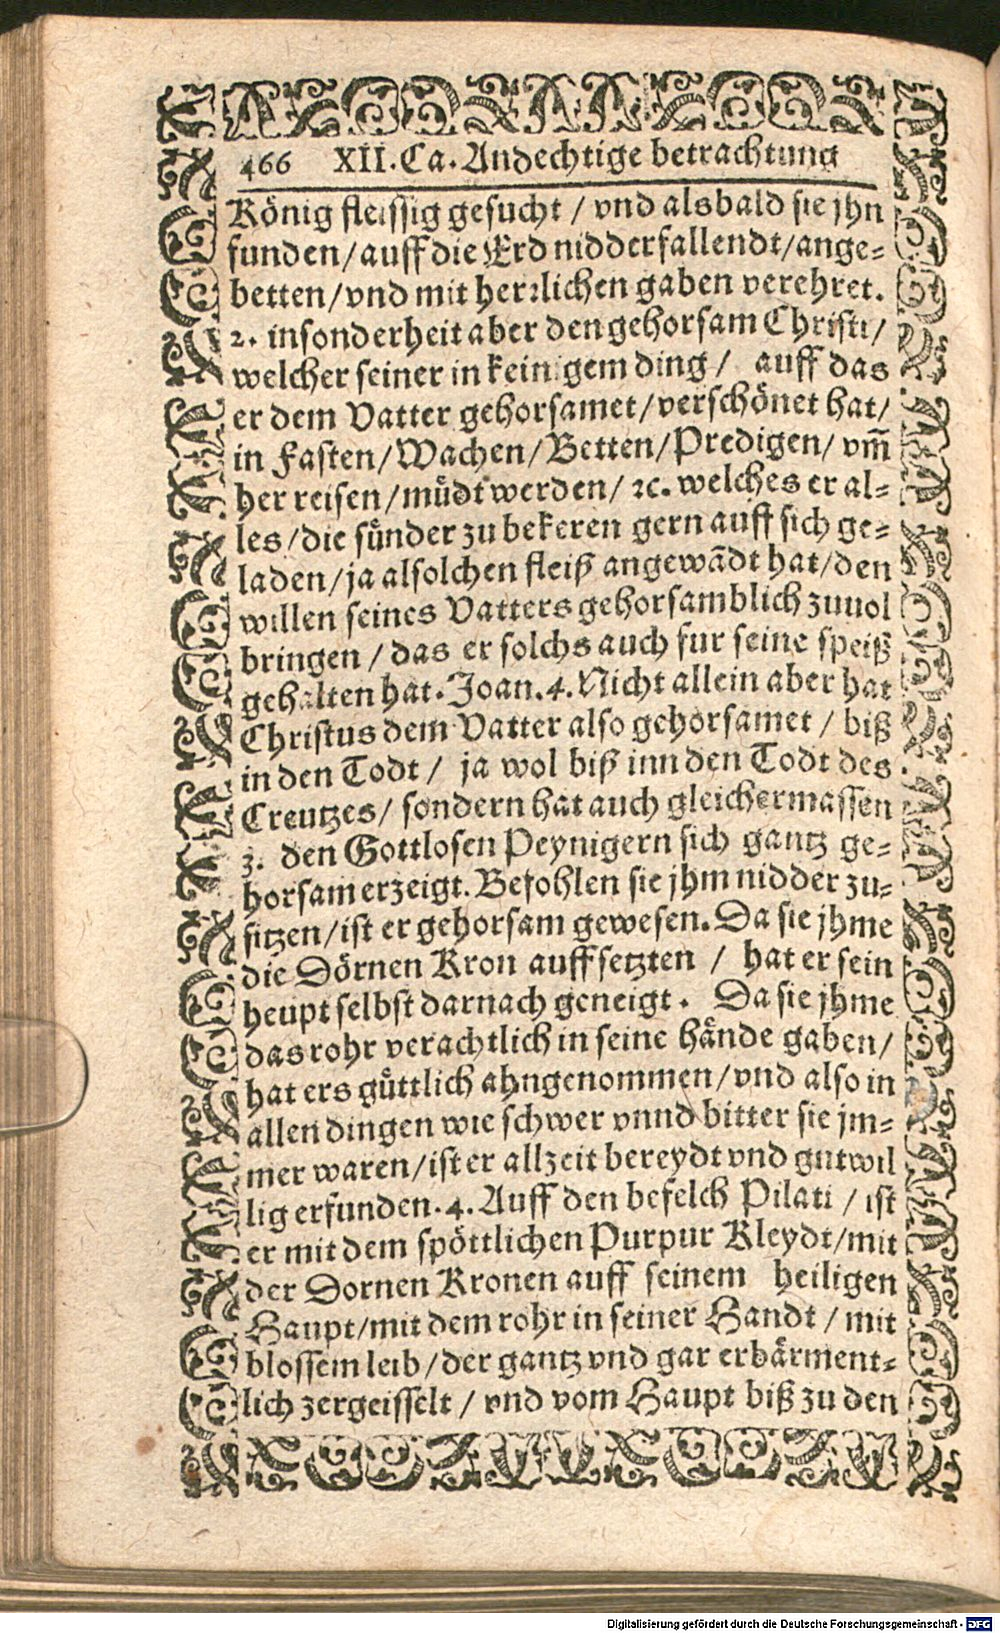 466 XII. Ca. Andechtige betrachtung
König fleissig gesucht / vnd alsbald sie jhn
funden/auff die Erd nidderfallendt/ange-
betten/vnd mit herꝛlichen gaben verehret.
2. insonderheit aber den gehorsam Christi/
welcher seiner in keinigem ding / auff das
er dem Vatter gehorsamet/verschönet hat/
in Fasten/Wachen/Betten/Predigen/ vm̄
her reisen/müdt werden/ ꝛc. welches er al-
les/die sünder zu bekeren gern auff sich ge-
laden/ja alsolchen fleiß angewādt hat/den
willen seines Vatters gehorsamblich zuuol
bringen / das er solchs auch fur seine speiß
gehalten hat. Joan. 4. Nicht allein aber hat
Christus dem Vatter also gehorsamet / biß
in den Todt / ja wol biß inn den Todt des
Creutzes/ sondern hat auch gleichermassen
3. den Gottlosen Peynigern sich gantz ge-
horsam erzeigt. Befohlen sie jhm nidder zu-
sitzen/ist er gehorsam gewesen. Da sie jhme
die Dörnen Kron auffsetzten / hat er sein
heupt selbst darnach geneigt. Da sie jhme
das rohr verachtlich in seine hände gaben/
hat ers güttlich ahngenommen/vnd also in
allen dingen wie schwer vnnd bitter sie jm-
mer waren/ist er allzeit bereydt vnd gutwil
lig erfunden. 4. Auff den befelch Pilati / ist
er mit dem spöttlichen Purpur Kleydt/mit
der Dornen Kronen auff seinem heiligen
Haupt/mit dem rohr in seiner Handt / mit
blossem leib/der gantz vnd gar erbärment-
lich zergeisselt / vnd vom Haupt biß zu den
Digitalisierung gefördert durch die Deutsche Forschungsgemeinschaft - DFG